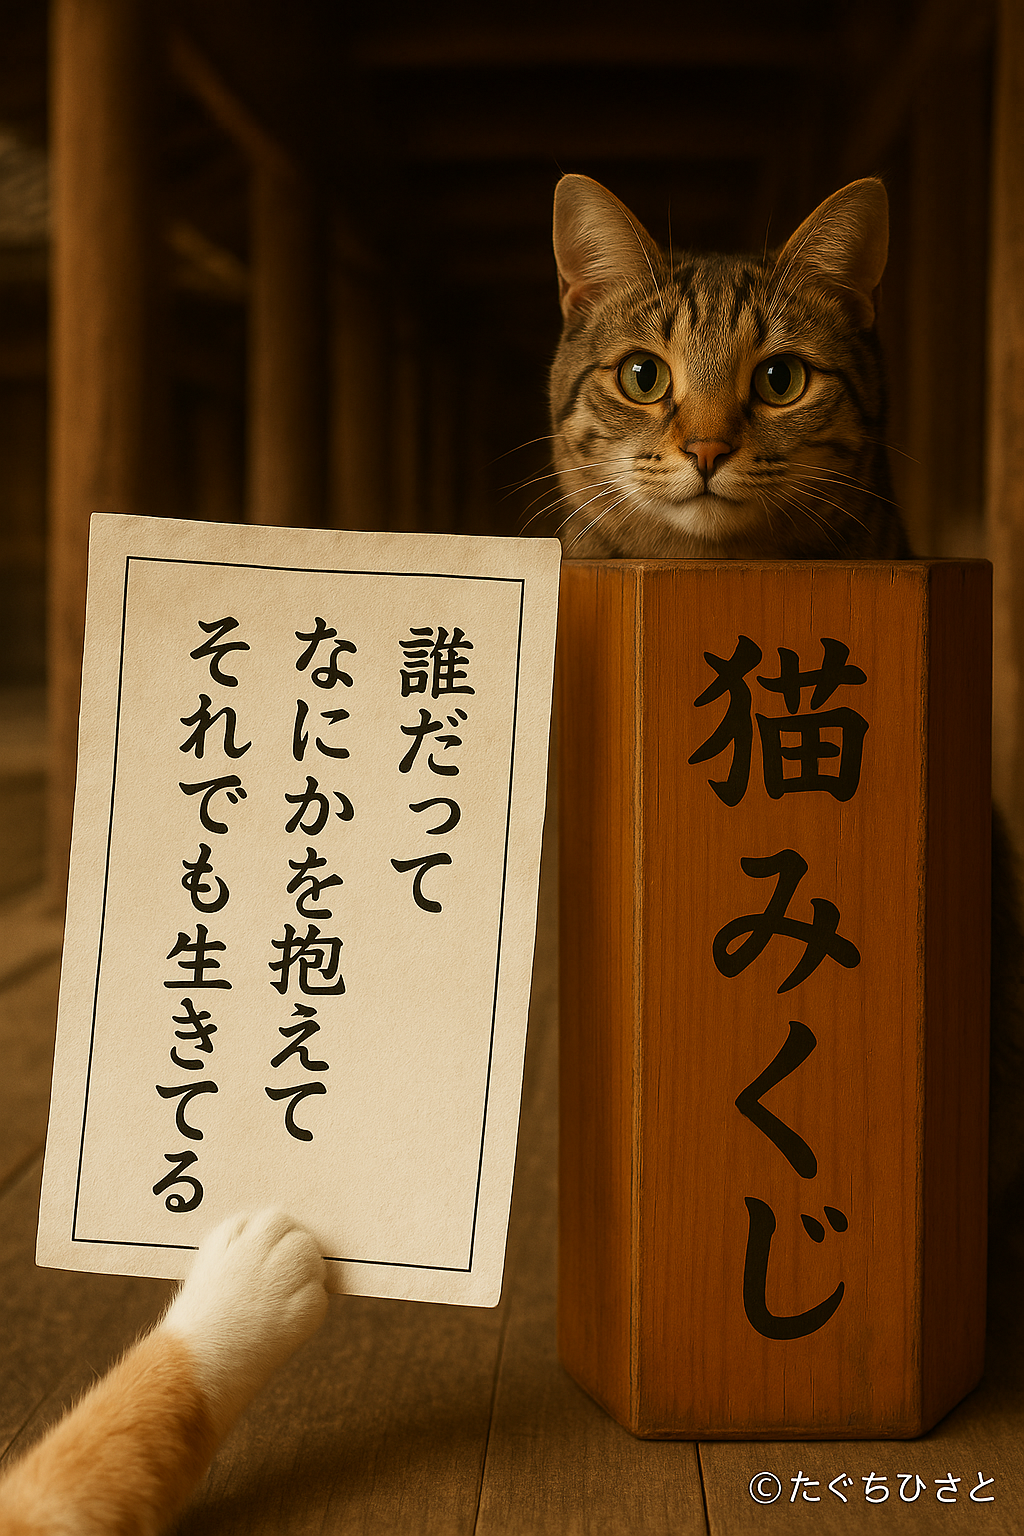 誰だって
なにかを抱えて
それでも生きてる
猫みくじ
©たぐちひさと